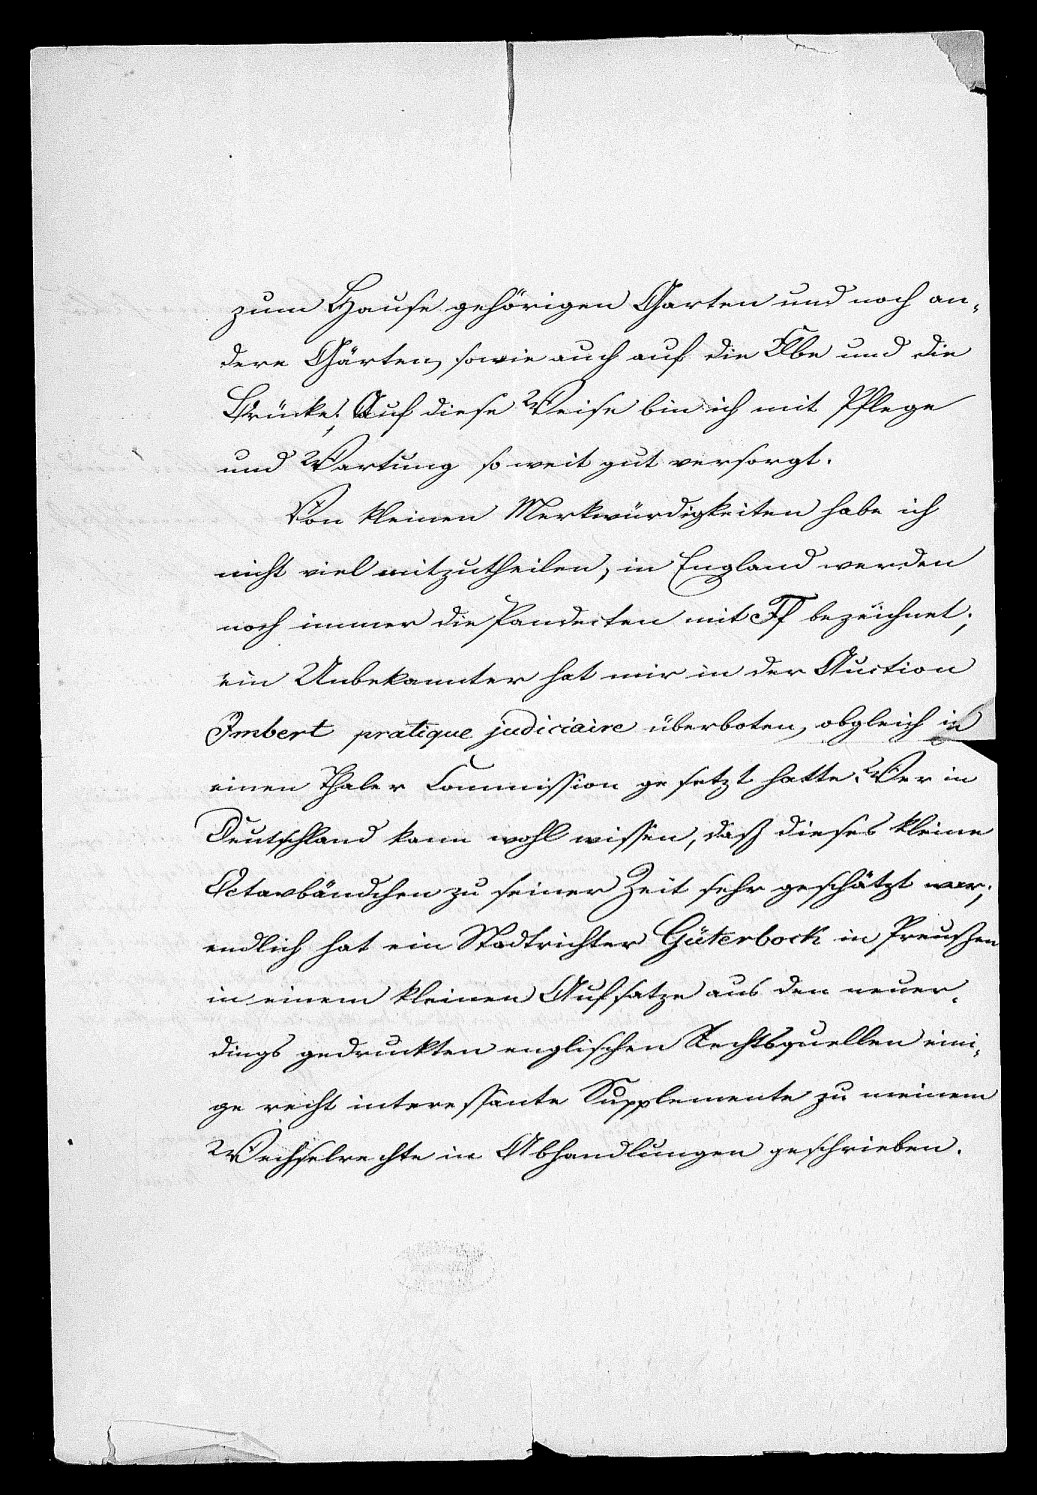 zum Hause gehörigen Garten und noch an-
dere Gärten, sowie auch auf die Elbe und die
Brücke. Auf diese Weise bin ich mit Pflege
und Wartung so weit gut versorgt.
Von kleinen Merkwürdigkeiten habe ich
nicht viel mitzutheilen, in England werden
noch immer die Pandecten mit Ff bezeichnet;
ein Unbekannter hat mir in der Auction
Imbert pratique judiciaire überboten, obgleich ich
einen Thaler Commission gesetzt hatte. Wer in
Deutschland kann wohl wissen, daß dieses kleine
Octavbändchen zu seiner Zeit sehr geschätzt war;
endlich hat ein Stadtrichter Güterbock in Preußen
in einem kleinen Aufsatze aus den neuer-
dings gedruckten englischen Rechtsquellen eini-
ge recht interessante Supplemente zu meinem
Wechselrechte in Abhandlungen geschrieben.